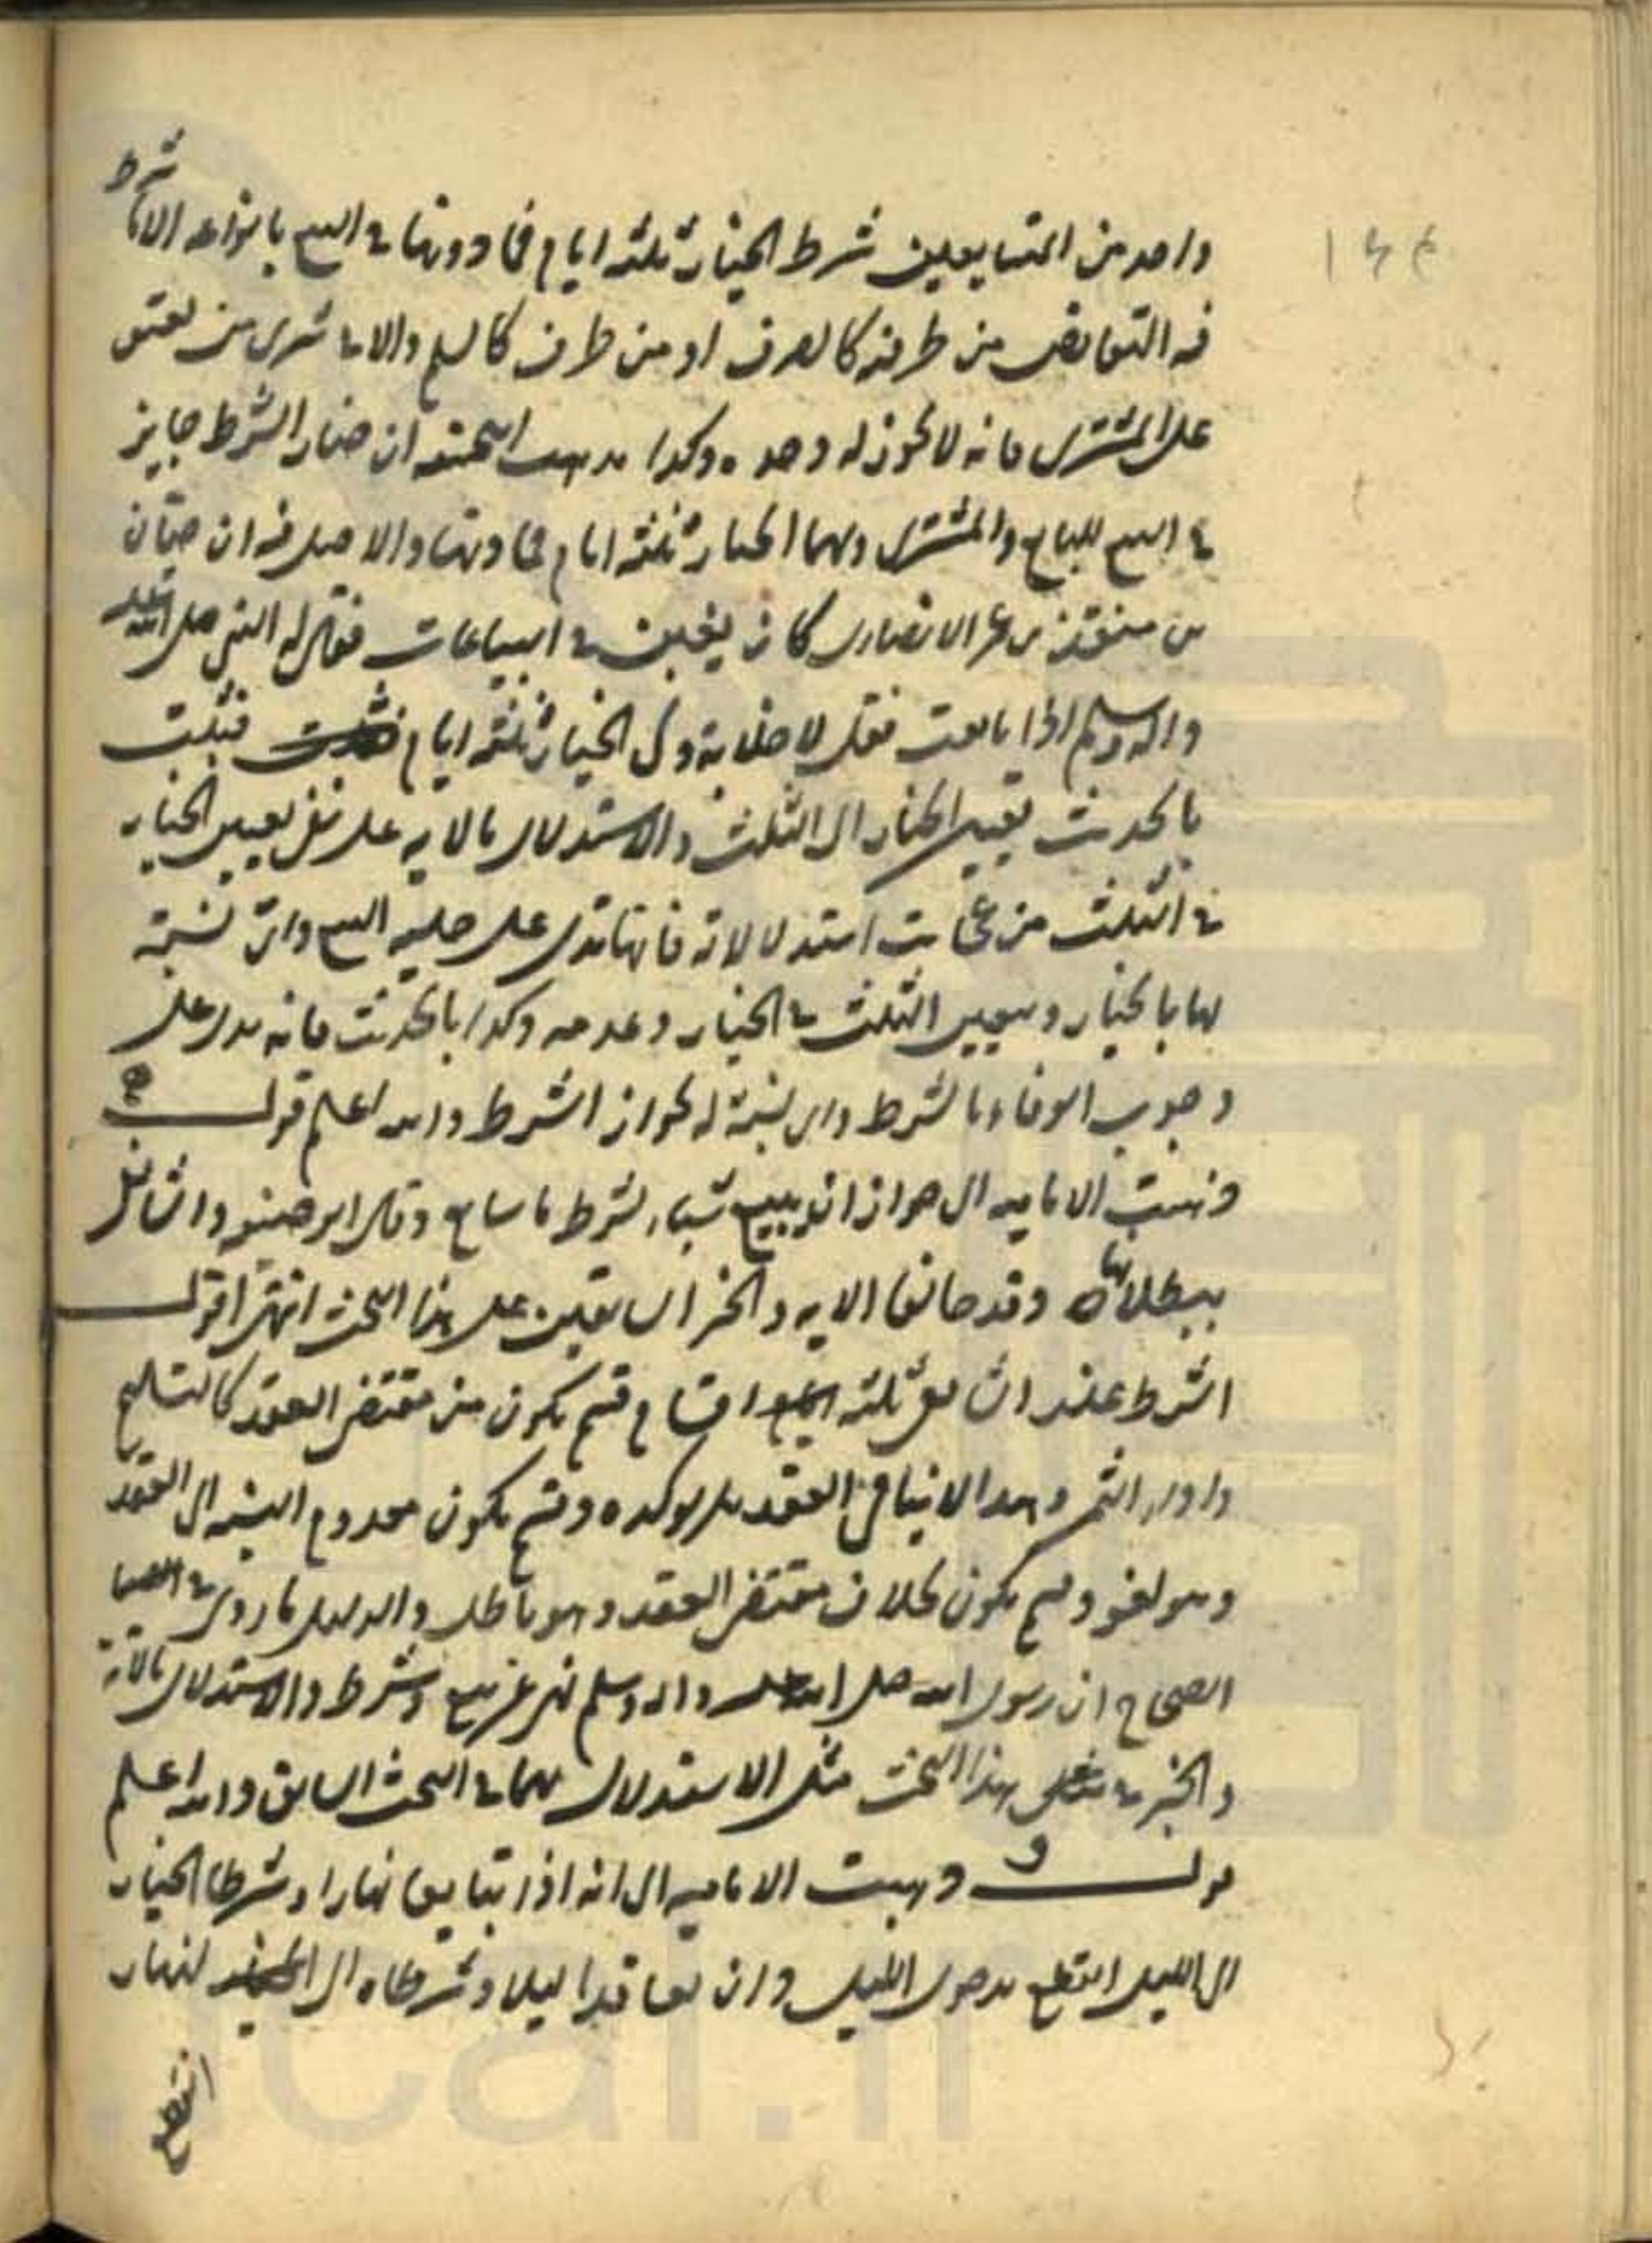 شرط
واحد من المتبايعين شرط الخيار ثلثة ايام فما دونها في البيع بانواعه الا ما
فيه التقابض من طرفيه كالصرف او من طرف كالسلم والا في شرى من يعتق
على المشترى فانه لا يجوز له وحده وكذا مذهب الحنفيه ان خيار الشرط جايز
في البيع للبايع والمشترى ولهما الخيار ثلثة ايام فما دونها والاصل فيه ان حبان
بن منقذ بن عمر الانصارى كان يغبن في البياعات فقال له النبي صلى الله عليه
واله وسلم اذا بايعت فقل لا خلابة ولى الخيار ثلثة ايام فثبت
بالحديث تعيين الخيار الى الثلث والاستدلال بالايه على نفى تعيين الخيار
في الثلث من عجايب استدلالاته فانها تدل على حلية البيع واى نسبة
لها بالخيار وتعيين الثلث في الخيار وعدمه وكذا بالحديث فانه يدل على
وجوب الوفاء بالشرط واى نسبة له لجواز الشرط والله اعلم قوله
ذهبت الاماميه الى جواز ان يبيع شيئا بشرط ما سايع وقال ابو حنيفه والشافعى
ببطلانها وقد خالفا الايه والخبر السابقين على هذا البحث انتهى اقول
الشرط عند الشافعى ثلثة اقسام قسم يكون من مقتضى العقد كالتسليم
وادراء الثمن وهذا لا ينافى العقد بل يوكده وقسم يكون معدوم النسبه الى العقد
وهو لغو وقسم يكون بخلاف مقتضى العقد وهو باطل والدليل ما روى في
الصحاح ان رسول الله صلى الله عليه واله وسلم نهى عن بيع وشرط والاستدلال بالايه
والخبر في هذا البحث مثل الاستدلال بهما في البحث السابق والله اعلم
قوله و ذهبت الاماميه الى انه اذا تبايعا نهارا وشرطا الخيار
الى الليل انقطع بدخول الليل وان تعاقدا ليلا وشرطاه الى النهار
انقطع